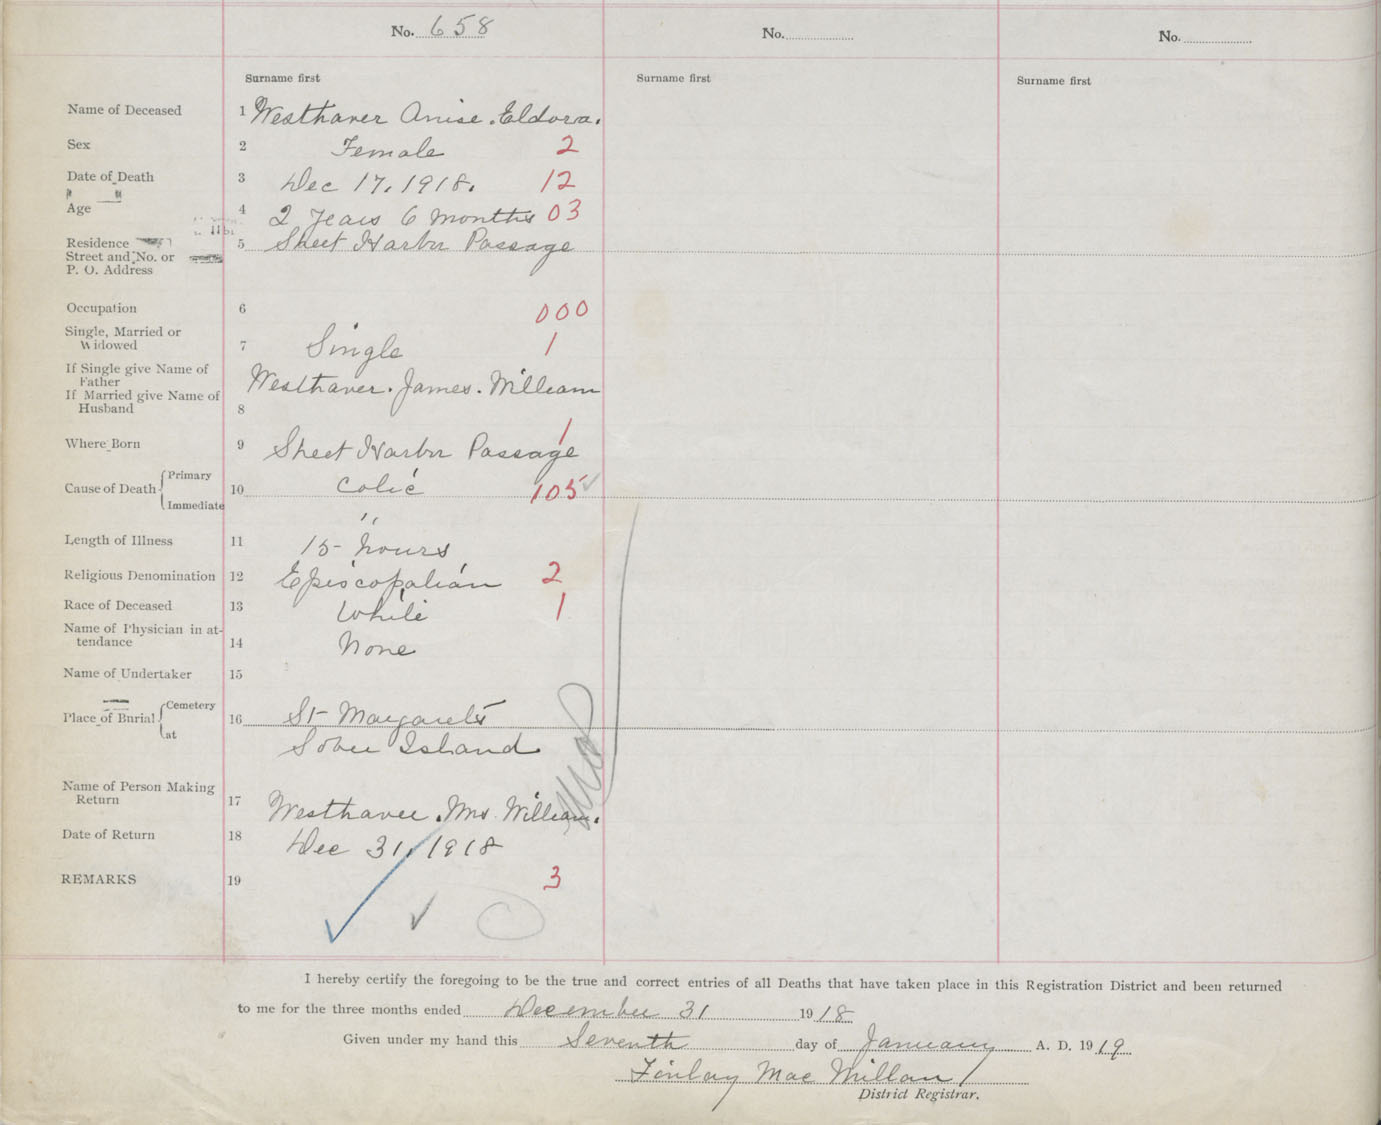 No. 658 No. No.
Surname first Surname first Surname first
Name of Deceased 1 Westhaver Anise. Eldora.
Sex 2 Female 2
Date of Death 3 Dec 17, 1918. 12
" "
Age 4 2 Years 6 Months 03
Residence 5 Sheet Harbor Passage
Street and No. or
P. O. Address
Occupation 6 000
Single, Married or
Widowed 7 Single 1
If Single give Name of
Father Westhaver. James. William
If Married give Name of
Husband 8
1
Where Born 9 Sheet Harbor Passage
Cause of Death { Primary
10 Colic 105
Immediate
"
Length of Illness 11 15- hours
Religious Denomination 12 Episcopalian 2
Race of Deceased 13 White 1
Name of Physician in at-
tendance 14 None
Name of Undertaker 15
Place of Burial { Cemetery
16 St- Margarets
at
Sober Island
Name of Person Making
Return 17 Westhaver. Mrs. William.
Date of Return 18 Dec 31, 1918
REMARKS 19 3
I hereby certify the foregoing to be the true and correct entries of all Deaths that have taken place in this Registration District and been returned
to me for the three months ended December 31 1918
Given under my hand this Seventh day of January A. D. 1919
Finlay Mac Millan
District Registrar.